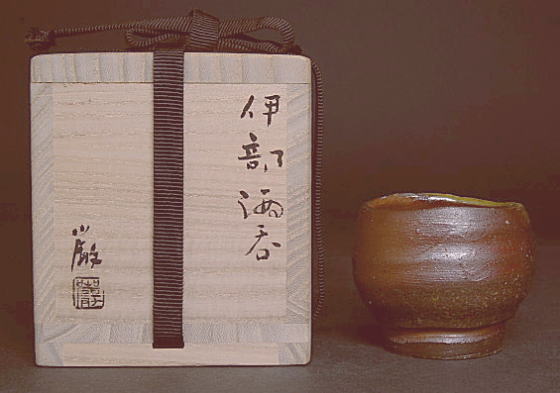 伊部酒呑
巌